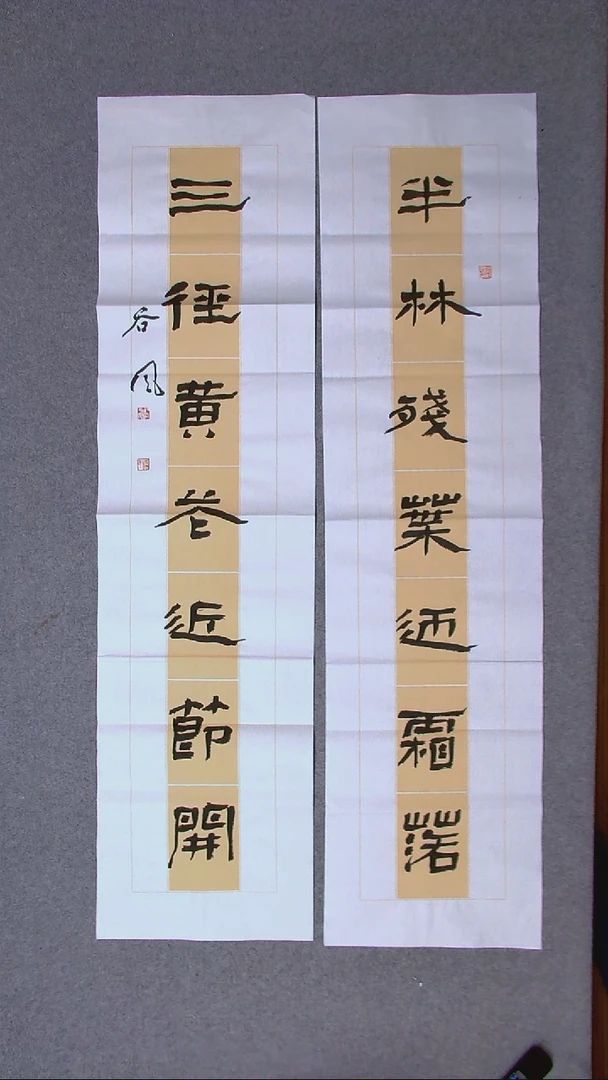 半林殘葉迎霜落
三徑黄花近節開
谷风